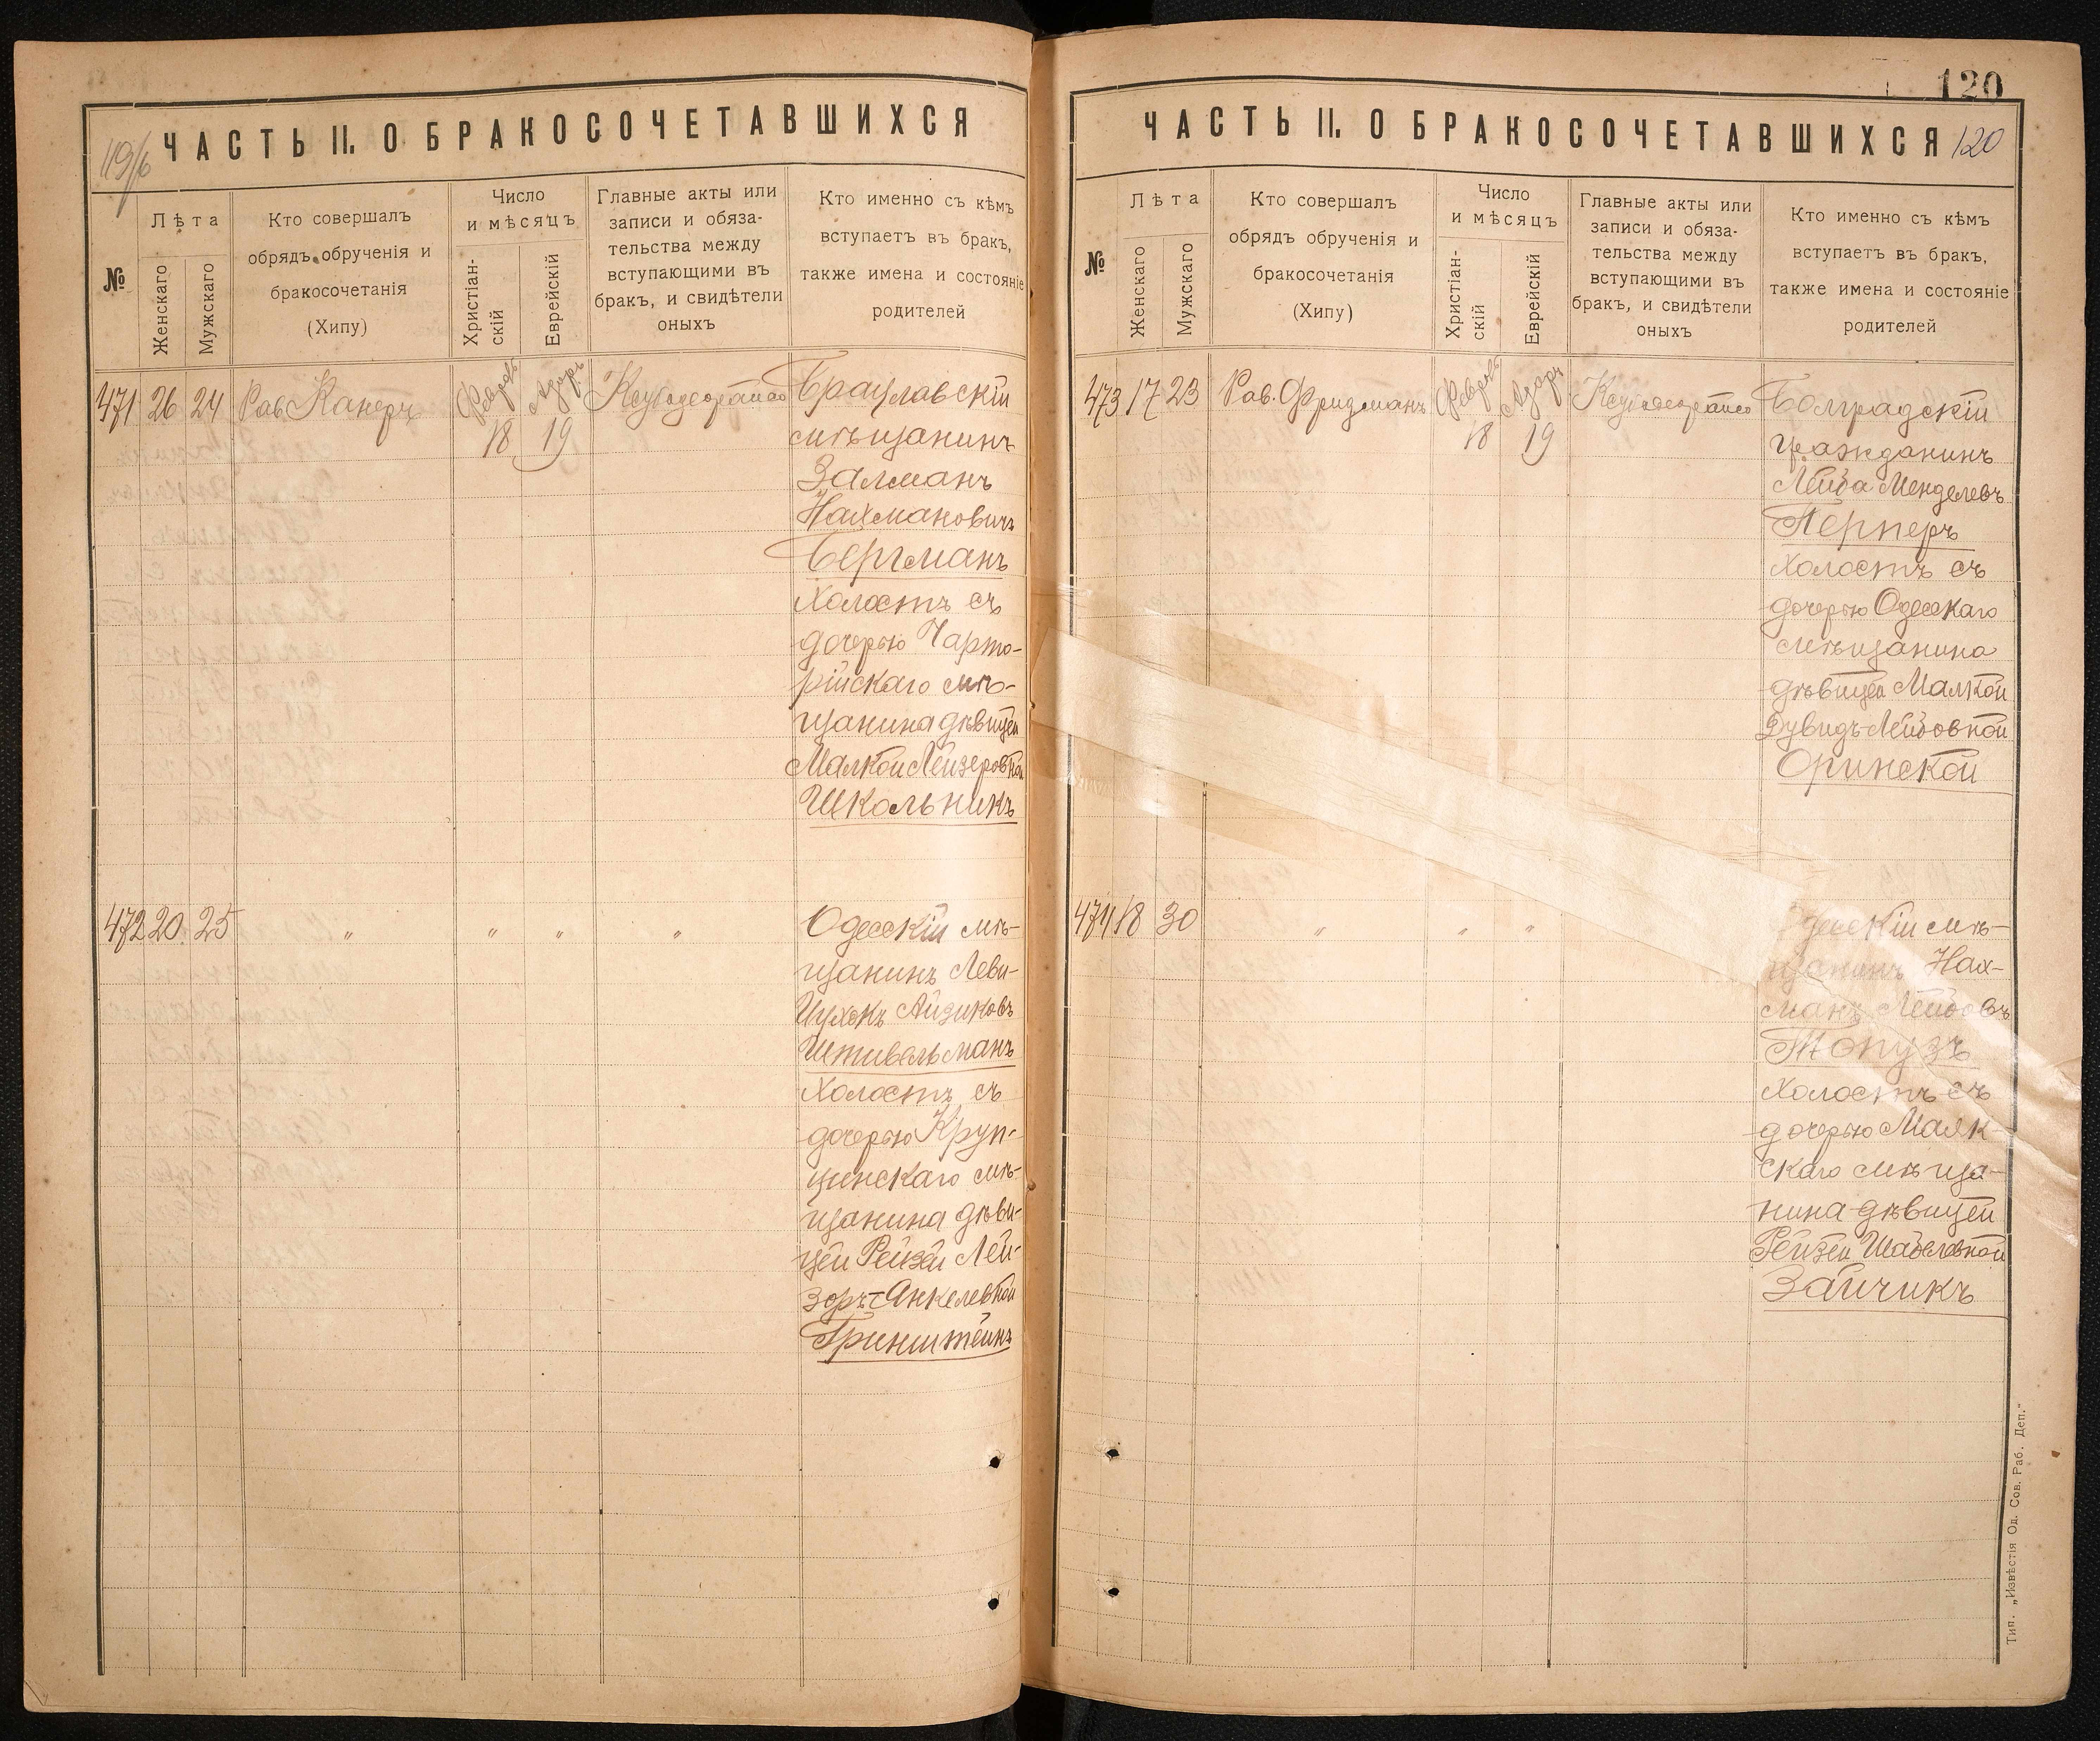 119/б
ЧАСТЬ II. О БРАКОСОЧЕТАВШИХСЯ
№
Лѣта
Женскаго
Мужскаго
Кто совершалъ
обрядъ обрученія и
бракосочетанія
(Хипу)
Число
и мѣсяцъ
Христіан-
скій
Еврейскій
Главные акты или
записи и обяза-
тельства между
вступающими въ
бракъ, и свидѣтели
оныхъ
Кто именно съ кѣмъ
вступаетъ въ бракъ,
также имена и состояніе
родителей
471 26 24 Рав Канеръ
Февраль
18
Адоръ
19
Брацлавскій
мѣщанинъ
Залманъ
Нахмановичъ
Бергманъ
холостъ съ
дочерью Чарто-
рійскаго мѣ-
щанина дѣвицей
Малкой Лейзеровной
Школьникъ
472 20 25 " " " "
Одесскій мѣ-
щанинъ Леви-
Ицхокъ Айзиковъ
Штивельманъ
холостъ съ
дочерью Круп-
щинскаго мѣ-
щанина дѣви-
цей Рейзей Лей-
зоръ-Янкелевной
Гринштейнъ
120
ЧАСТЬ II. О БРАКОСОЧЕТАВШИХСЯ 120
№
Лѣта
Женскаго
Мужскаго
Кто совершалъ
обрядъ обрученія и
бракосочетанія
(Хипу)
Число
и мѣсяцъ
Христіан-
скій
Еврейскій
Главные акты или
записи и обяза-
тельства между
вступающими въ
бракъ, и свидѣтели
оныхъ
Кто именно съ кѣмъ
вступаетъ въ бракъ,
также имена и состояніе
родителей
473 17 23 Рав. Фридманъ
Февраль
18
Адоръ
19
Болградскій
гражданинъ
Лейба Менделевъ
Перперъ
холостъ съ
дочерью Одесскаго
мѣщанина
дѣвицей Малкой
Дувидъ-Лейбовной
Оринской
474 18 30 " " "
Одесскій мѣ-
щанинъ Нах-
манъ Лейбовъ
Топузъ
холостъ съ
дочерью Маяк-
скаго мѣща-
нина дѣвицей
Рейзей Шабелевной
Зайчикъ
Тип. „Извѣстія Од. Сов. Раб. Деп."